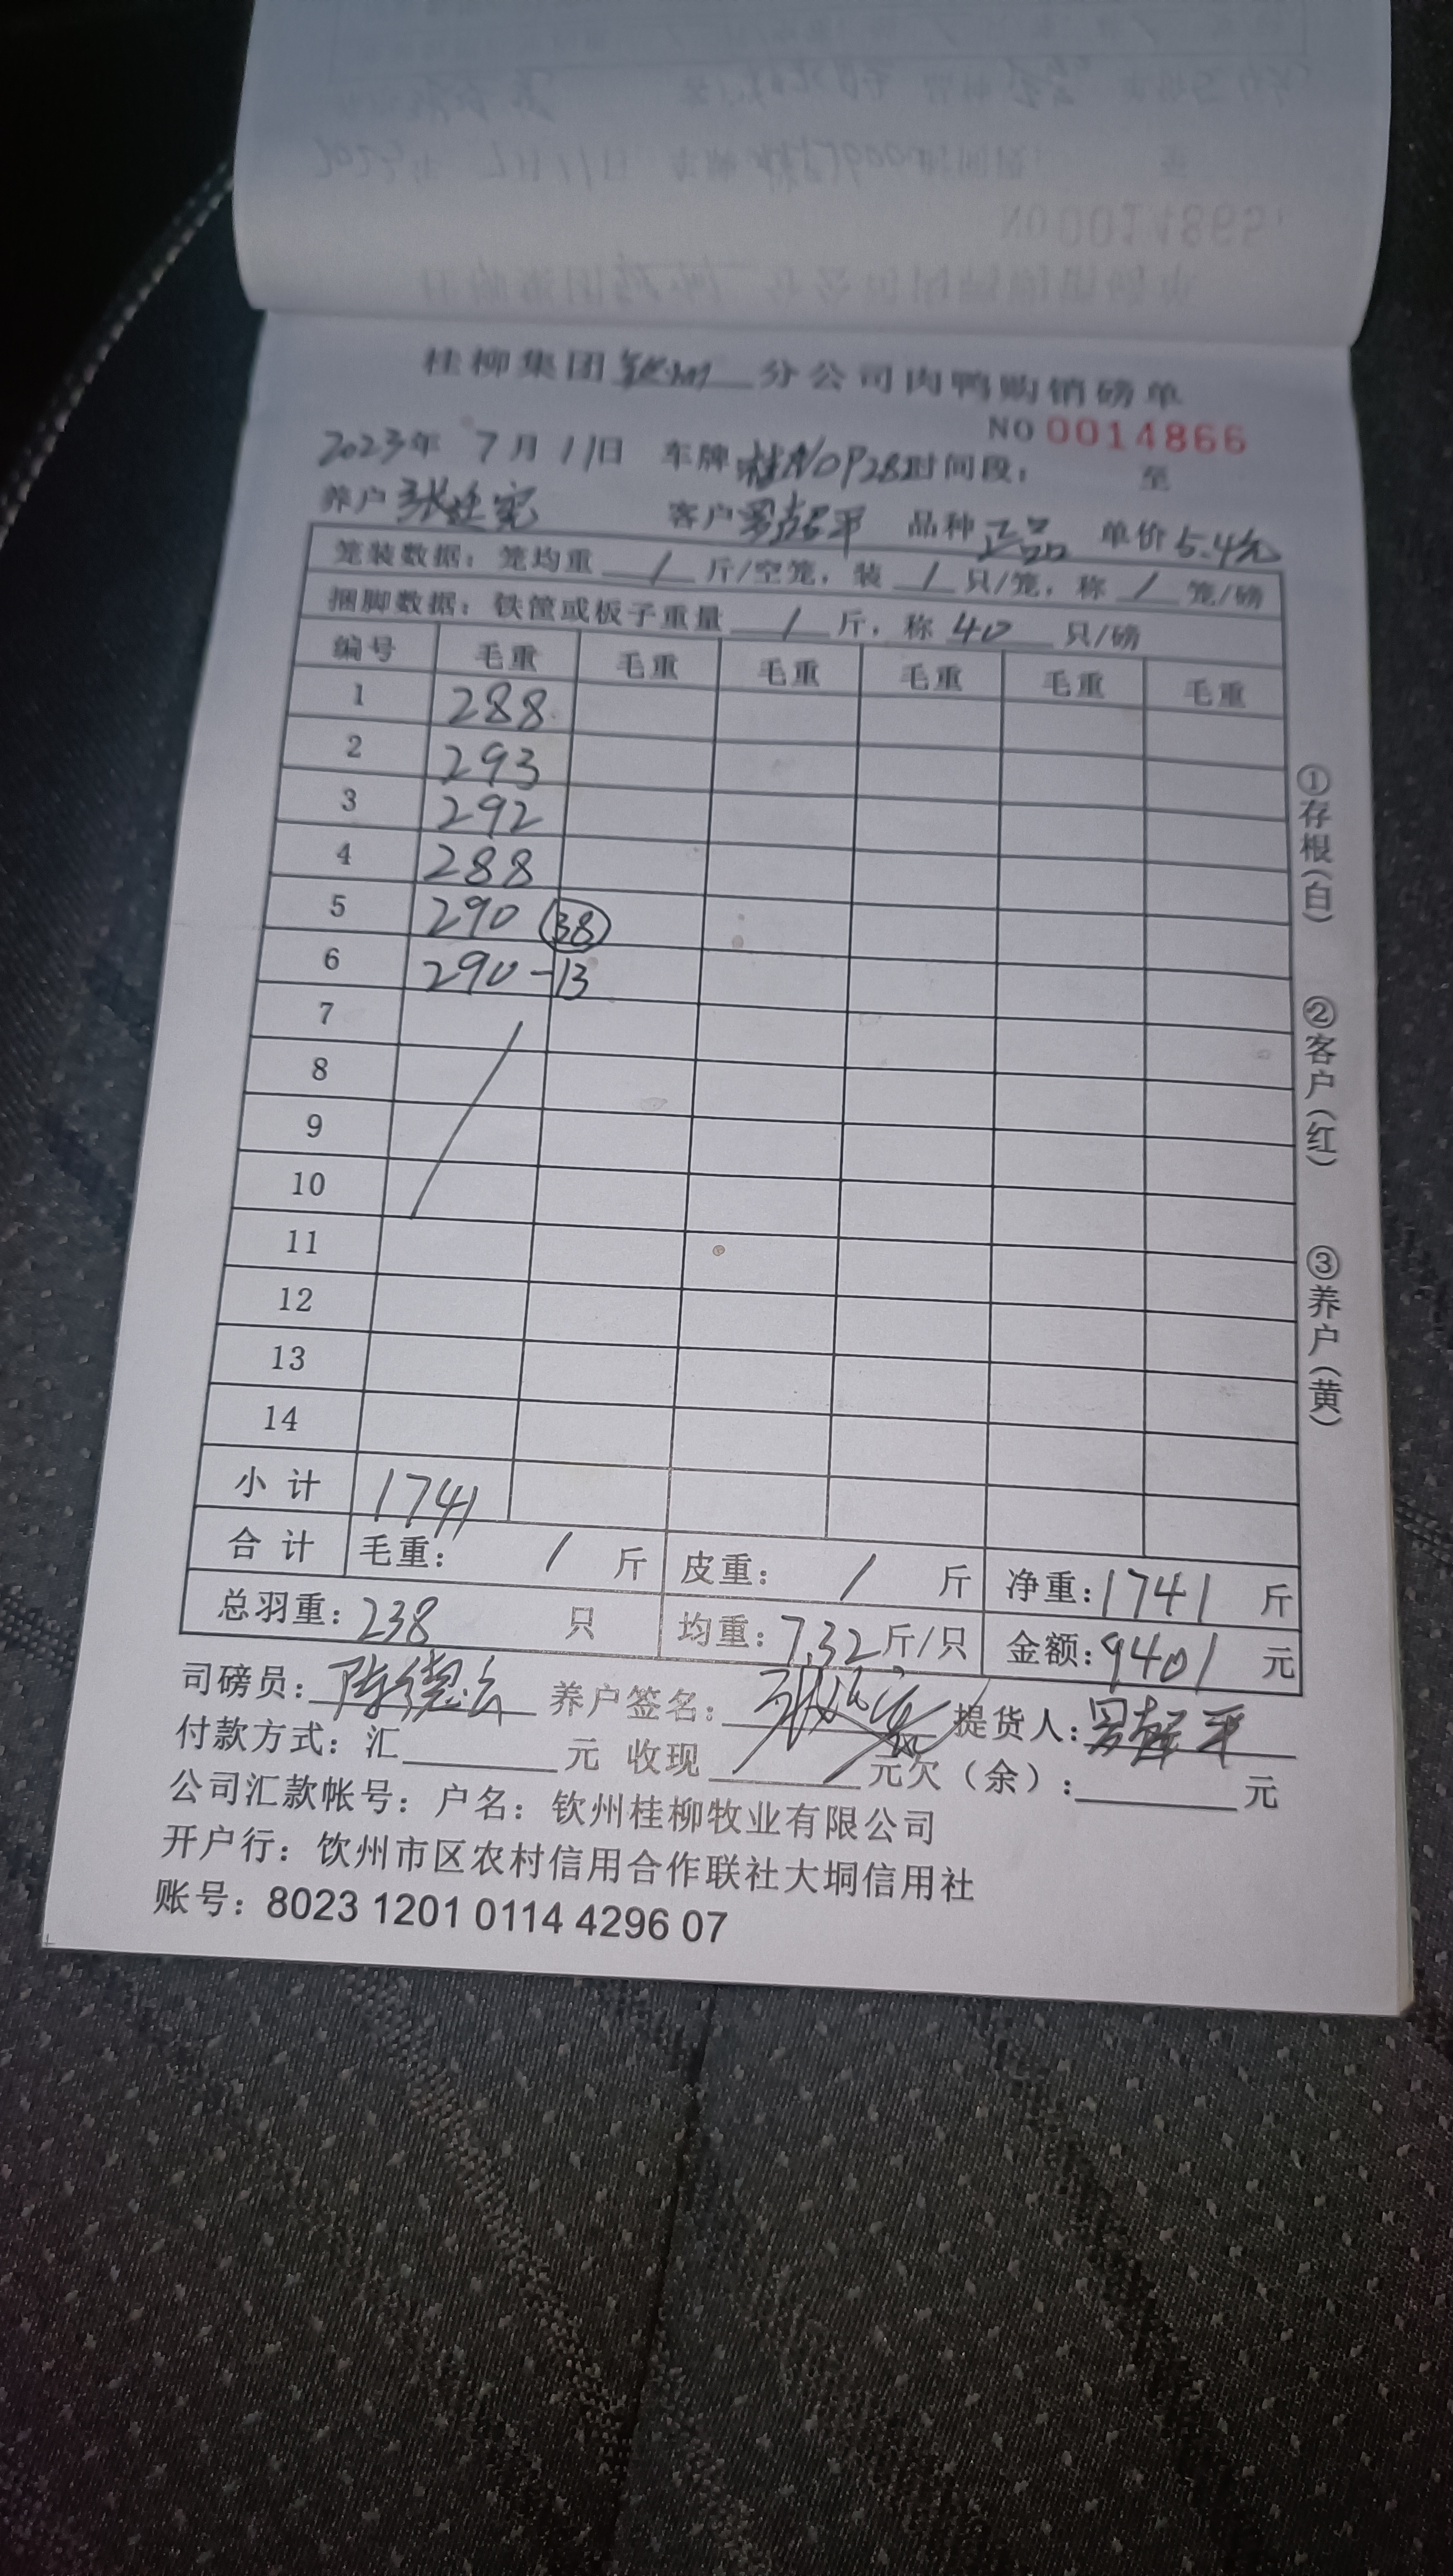 桂柳集团钦州分公司肉鸭购销磅单
NO 0014866
2023年 7月 11日 车牌桂N0P28 时间段： 至
养户 张廷宪 客户 罗 平 品种 正品 单价 5.4元
笼装数据：笼均重 / 斤/空笼，装 / 只/笼，称 / 笼/磅
捆脚数据：铁筐或板子重量 / 斤，称 40 只/磅
编号 毛重 毛重 毛重 毛重 毛重 毛重
1 288
2 293
3 292
4 288
5 290 38
6 290 -13
7
8
9
10
11
12
13
14
小计 1741
合计 毛重： / 斤 皮重： / 斤 净重：1741 斤
总羽重：238 只 均重：7.32 斤/只 金额：9401 元
司磅员：陈德 养户签名： 提货人：罗 平
付款方式：汇 元 收现 / 元欠（余）： 元
公司汇款帐号：户名：钦州桂柳牧业有限公司
开户行：钦州市区农村信用合作联社大垌信用社
账号：8023 1201 0114 4296 07
①存根（白） ②客户（红） ③养户（黄）